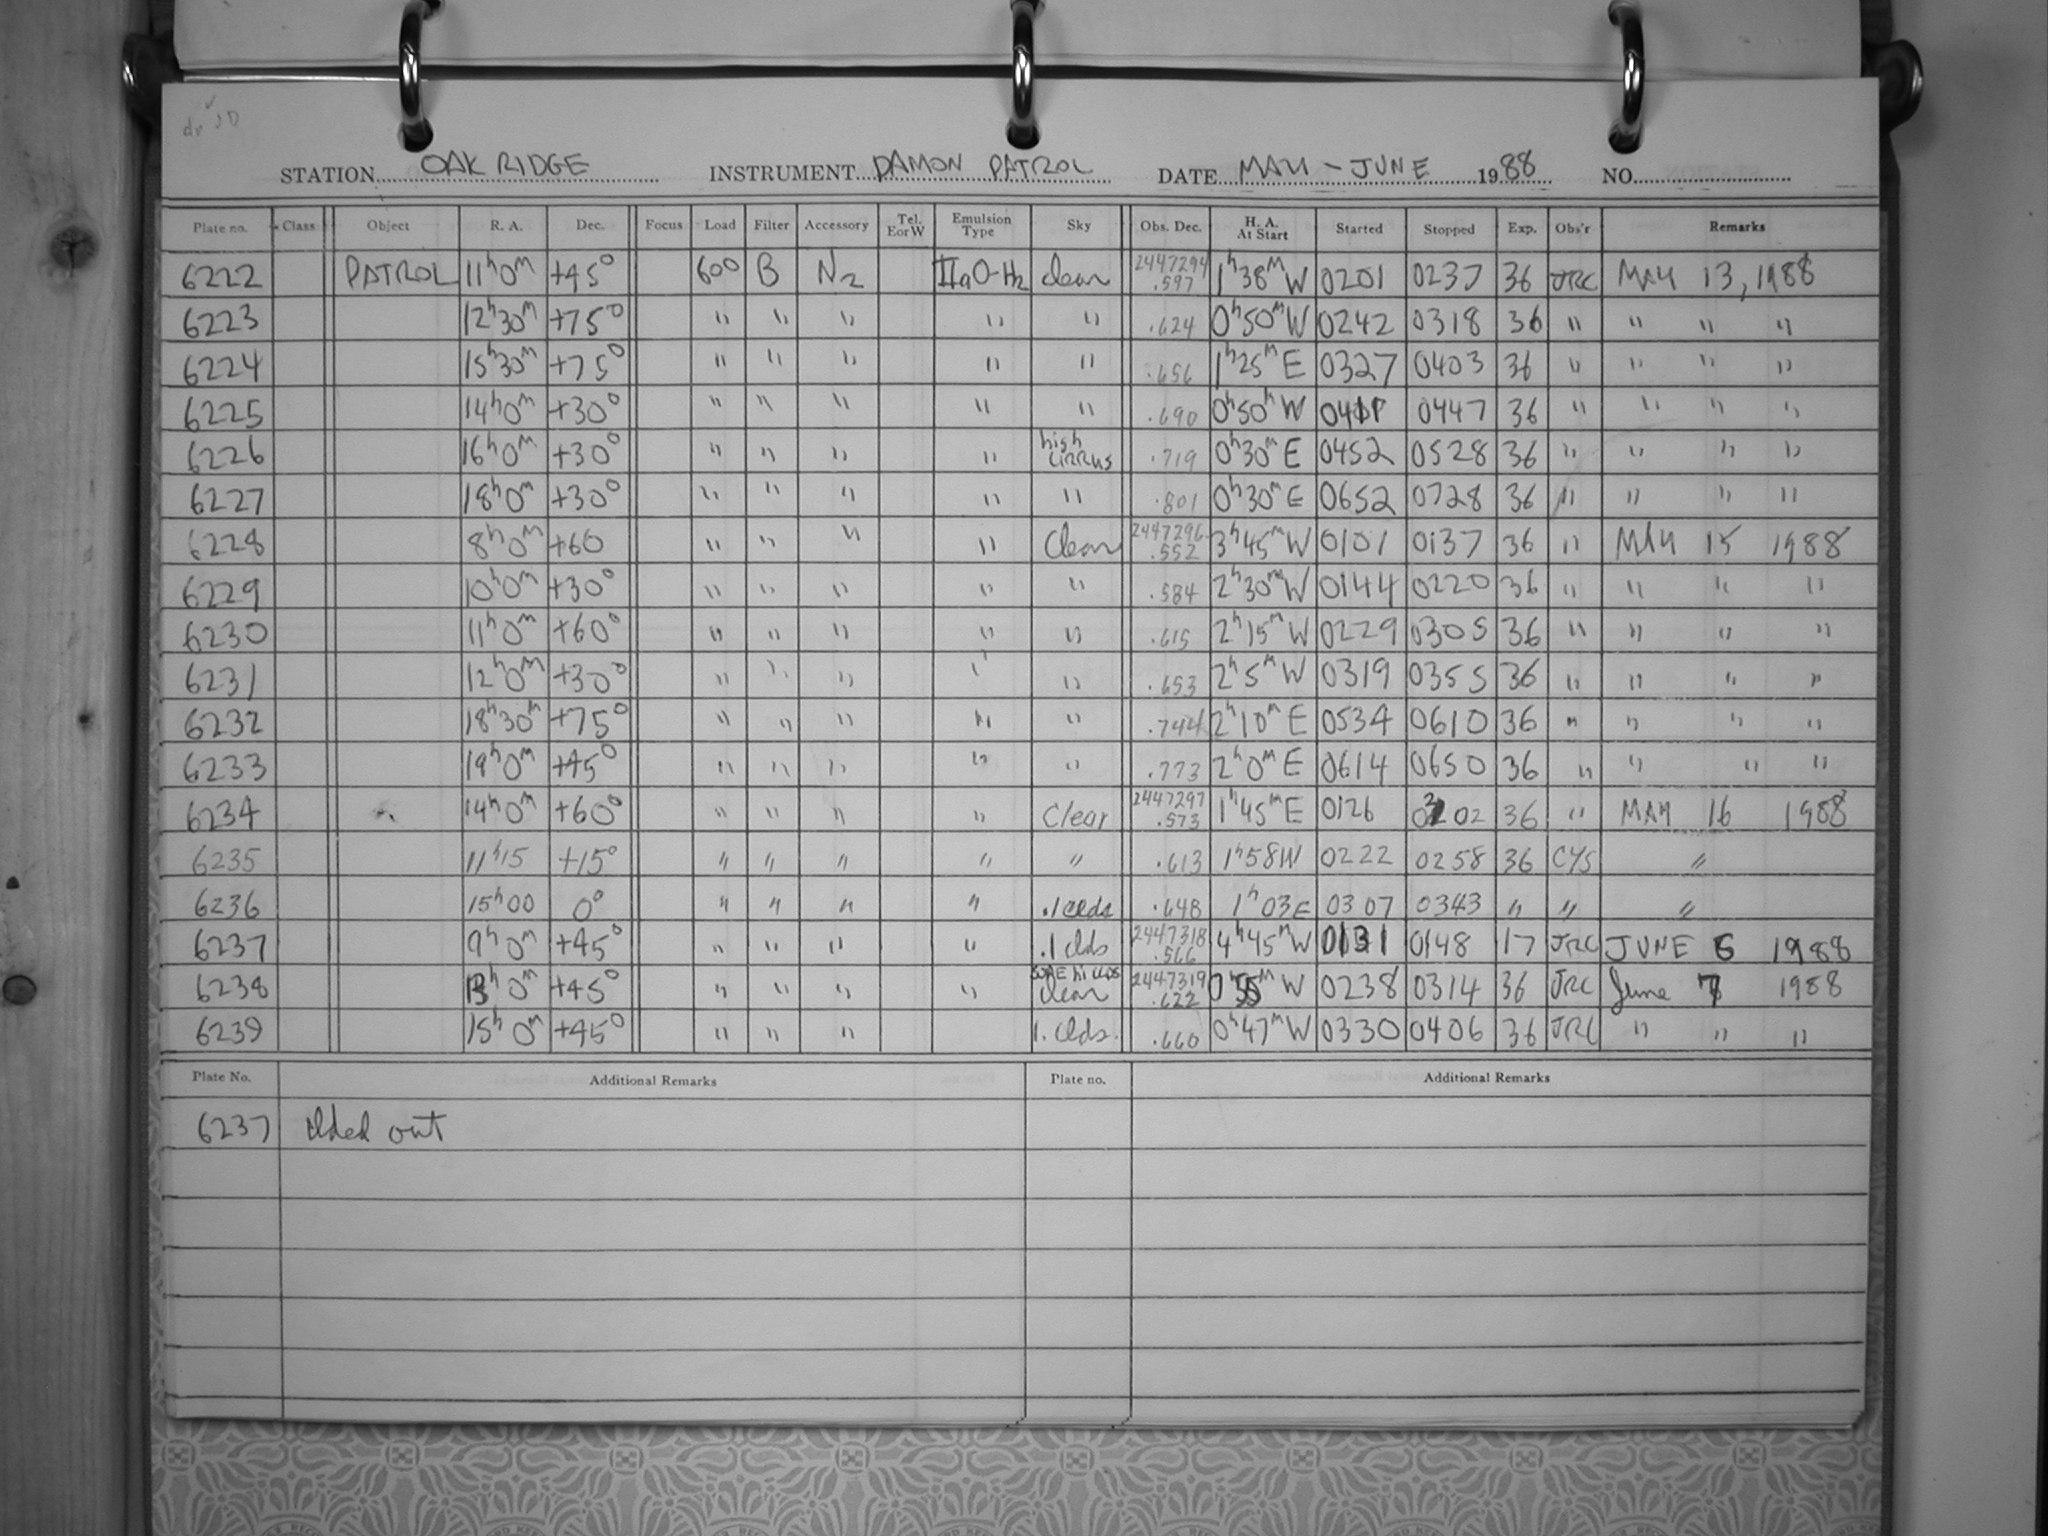 STATION OAK RIDGE INSTRUMENT DAMON PATROL DATE MAY - JUNE 1988 NO.
Plate no. Class Object R. A. Dec. Focus Load Filter Accessory Tel. EorW Emulsion Type Sky Obs. Dec. H. A. At Start Started Stopped Exp. Obs'r Remarks
6222 PATROL 11h0m +45° 600 B N2 IIaO-H2 clear 2447294.597 1h38m W 0201 0237 36 JRC MAY 13, 1988
6223 12h30m +75° " " " " " .624 0h50m W 0242 0318 36 " " " "
6224 15h30m +75° " " " " " .656 1h25m E 0327 0403 36 " " " "
6225 14h0m +30° " " " " " .690 0h50m W 0411 0447 36 " " " "
6226 16h0m +30° " " " " high cirrus .719 0h30m E 0452 0528 36 " " " "
6227 18h0m +30° " " " " " .801 0h30m E 0652 0728 36 " " " "
6228 8h0m +60 " " " " Clear 2447296.552 3h45m W 0101 0137 36 " MAY 15 1988
6229 10h0m +30° " " " " " .584 2h30m W 0144 0220 36 " " " "
6230 11h0m +60° " " " " " .615 2h15m W 0229 0305 36 " " " "
6231 12h0m +30° " " " " " .653 2h5m W 0319 0355 36 " " " "
6232 18h30m +75° " " " " " .744 2h10m E 0534 0610 36 " " " "
6233 19h0m +45° " " " " " .773 2h0m E 0614 0650 36 " " " "
6234 14h0m +60° " " " " Clear 2447297.573 1h45m E 0126 0202 36 " MAY 16 1988
6235 11h15 +15° " " " " " .613 1h58W 0222 0258 36 CYS "
6236 15h00 0° " " " " .1 clds .648 1h03E 0307 0343 " " "
6237 9h0m +45° " " " " .1 clds 2447318.566 4h45m W 0131 0148 17 JRC JUNE 6 1988
6238 13h0m +45° " " " " clear 2447319.622 0h55m W 0238 0314 36 JRC June 7 1988
6239 15h0m +45° " " " 1. clds. .660 0h47m W 0330 0406 36 JRC " " "
Plate No. Additional Remarks Plate no. Additional Remarks
6237 clded out